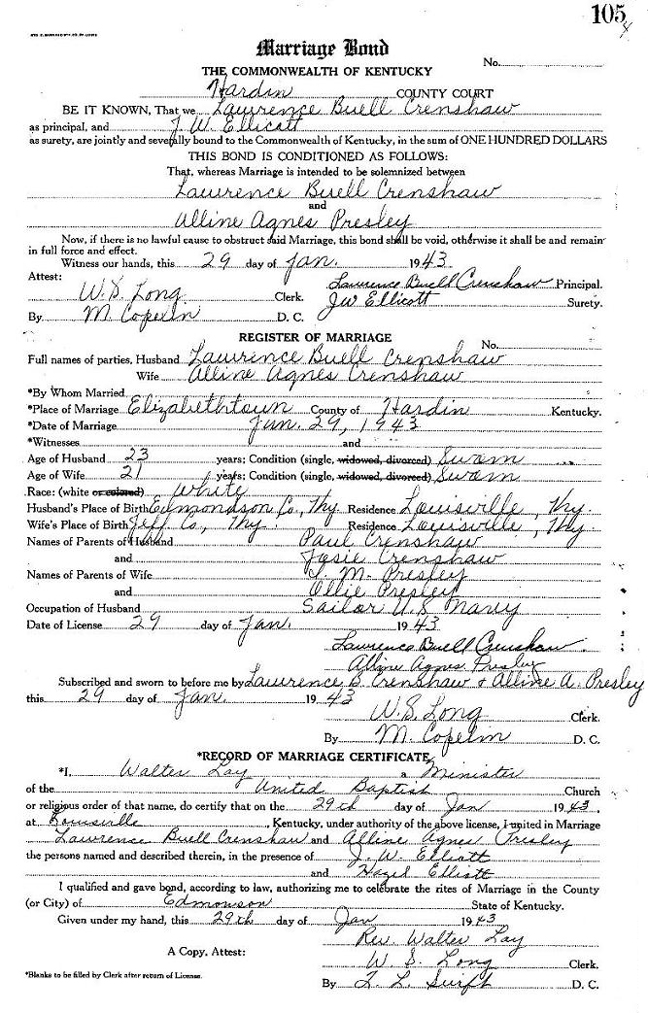 105
Marriage Bond
No.
THE COMMONWEALTH OF KENTUCKY
Hardin COUNTY COURT
BE IT KNOWN, That we Lawrence Buell Crenshaw
as principal, and J. W. Ellicott
as surety, are jointly and severally bound to the Commonwealth of Kentucky, in the sum of ONE HUNDRED DOLLARS
THIS BOND IS CONDITIONED AS FOLLOWS:
That, whereas Marriage is intended to be solemnized between
Lawrence Buell Crenshaw
and
Alline Agnes Presley
Now, if there is no lawful cause to obstruct said Marriage, this bond shall be void, otherwise it shall be and remain
in full force and effect.
Witness our hands, this 29 day of Jan. 1943
Attest: Lawrence Buell Crenshaw Principal.
W. S. Long Clerk. JW Ellicott Surety.
By M Copelin D. C.
REGISTER OF MARRIAGE
No.
Full names of parties, Husband Lawrence Buell Crenshaw
Wife Alline Agnes Crenshaw
*By Whom Married
*Place of Marriage Elizabethtown County of Hardin Kentucky.
*Date of Marriage Jan. 29, 1943
*Witnesses and
Age of Husband 23 years; Condition (single, widowed, divorced) Swam
Age of Wife 21 years; Condition (single, widowed, divorced) Swam
Race: (white or colored) White
Husband's Place of Birth Edmondson Co., Ky. Residence Louisville, Ky.
Wife's Place of Birth Jeff. Co, Ky. Residence Louisville, Ky.
Names of Parents of Husband Paul Crenshaw
and Josie Crenshaw
Names of Parents of Wife M. Presley
and Ollie Presley
Occupation of Husband Sailor U.S Navy
Date of License 29 day of Jan. 1943
Lawrence Buell Crenshaw
Alline Agnes Presley
Subscribed and sworn to before me by Lawrence B. Crenshaw & Alline A. Presley
this 29 day of Jan. 1943
W. S. Long Clerk.
By M. Copelin D. C.
*RECORD OF MARRIAGE CERTIFICATE
*I, Walter Lay a Minister
of the United Baptist Church
or religious order of that name, do certify that on the 29th day of Jan 1943,
at Kentucky, under authority of the above license, I united in Marriage
Lawrence Buell Crenshaw and Alline Agnes Presley
the persons named and described therein, in the presence of J. W. Elliott
and Hazel Elliott
I qualified and gave bond, according to law, authorizing me to celebrate the rites of Marriage in the County
(or City) of Edmonson State of Kentucky.
Given under my hand, this 29th day of Jan 1943
Rev. Walter Lay
A Copy, Attest: W. S. Long Clerk.
*Blanks to be filled by Clerk after return of License. By L. L. Swift D. C.